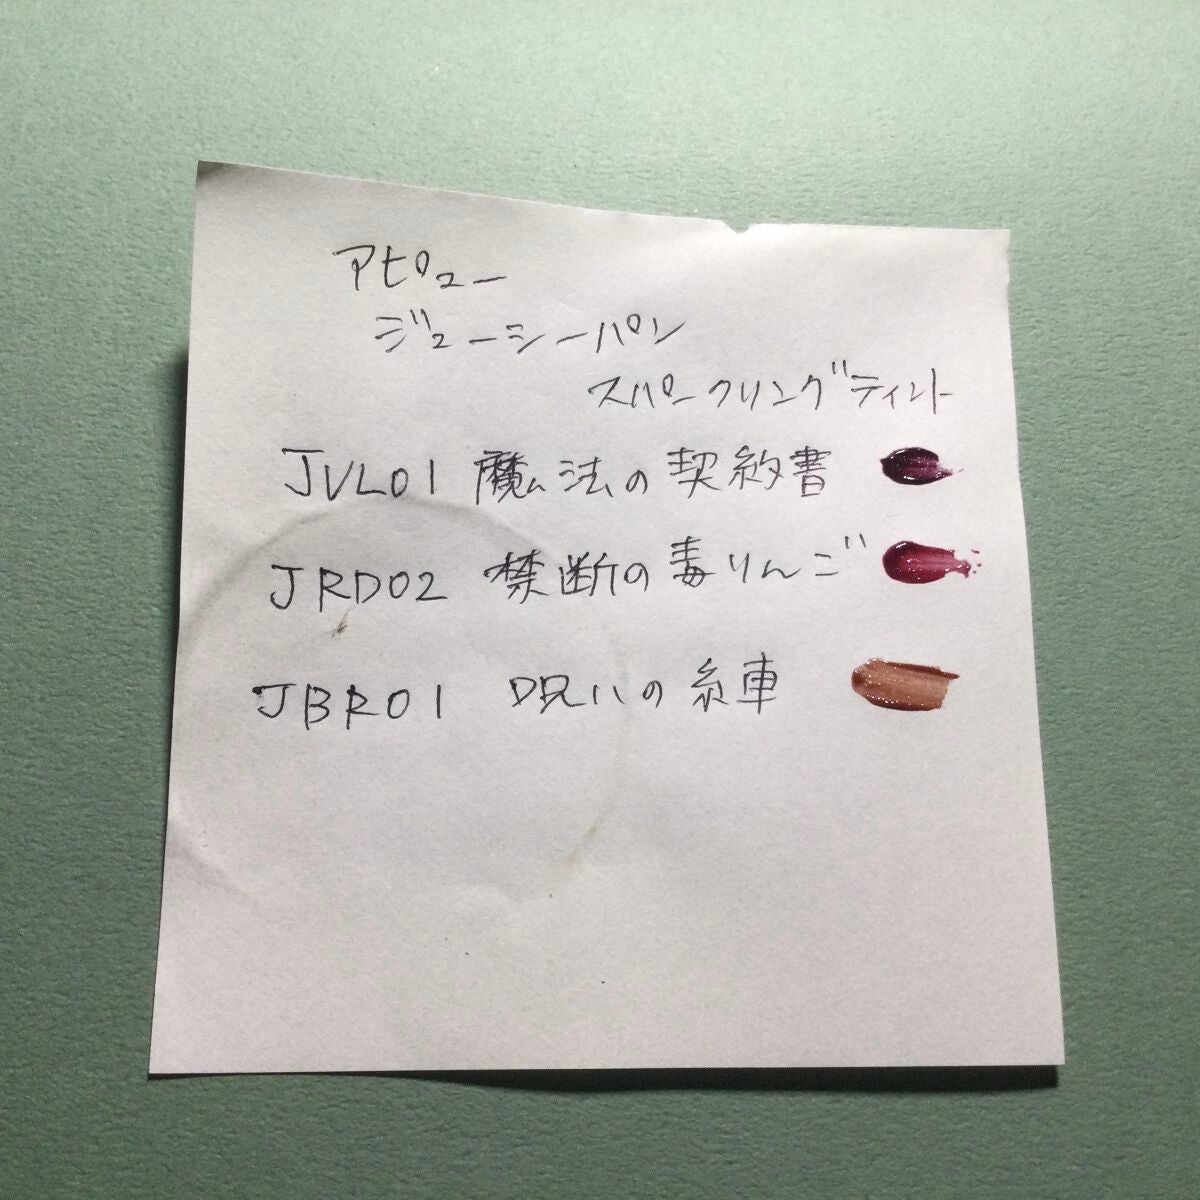 アピュー
ジューシーパン
スパークリングティント
JVL01 魔法の契約書
JRD02 禁断の毒りんご
JBR01 呪いの糸車